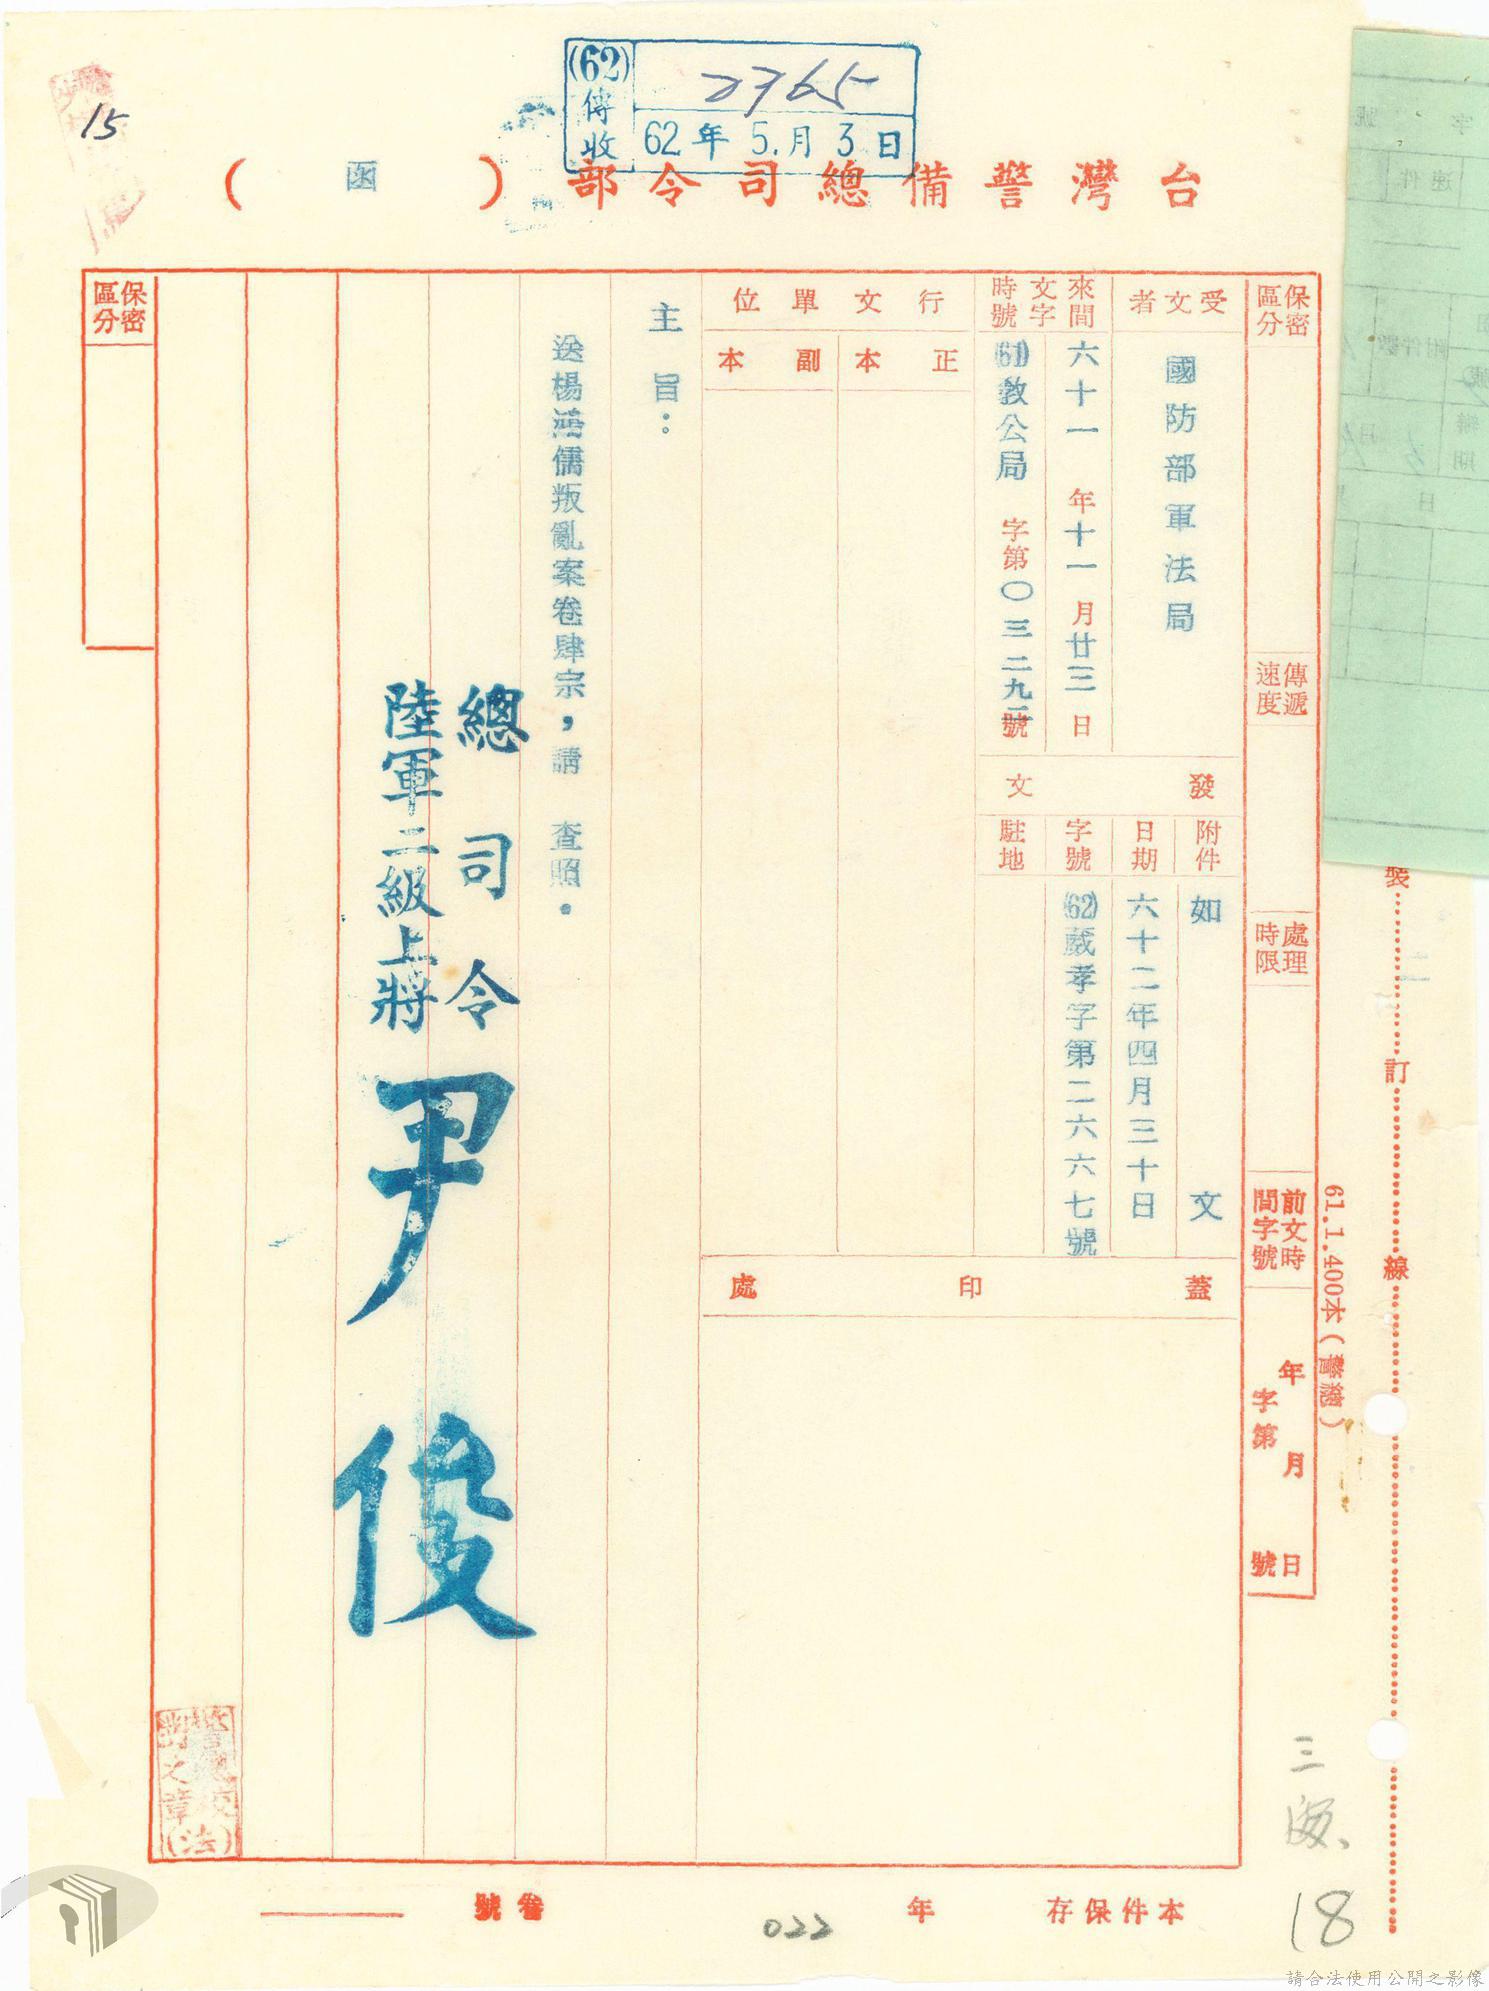 15
(62)傳收
2765
62年5.月3日
台灣警備總司令部(函)
保密區分
傳遞速度
處理時限
前文時間字號
年 月 日
字第 號
受文者
國防部軍法局
來文時間字號
六十一年十一月廿三日
(61)教公局字第〇三二九二號
發文
附件
如文
日期
六十二年四月三十日
字號
(62)葳孝字第二六六七號
駐地
行文單位
正本
副本
蓋印處
主旨：
送楊鴻儒叛亂案卷肆宗，請 查照。
總司令
陸軍二級上將
尹俊
保密區分
之章(法)
裝 訂 線
61.1.400本(警總)
字 號
速件
附件數
辦
期
月
日
18
本件保存 年
022
卷號
請合法使用公開之影像